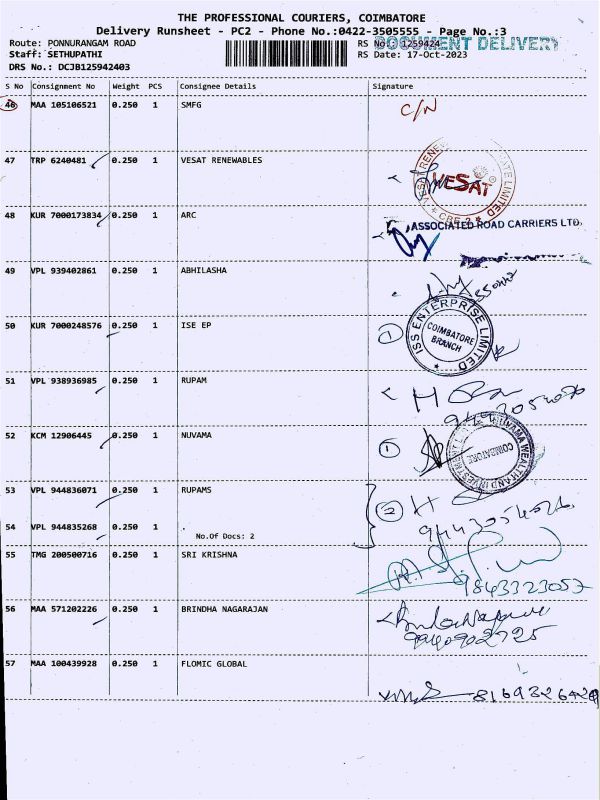 THE PROFESSIONAL COURIERS, COIMBATORE
Delivery Runsheet - PC2 - Phone No.:0422-3505555 - Page No.:3
Route: PONNURANGAM ROAD RS No.: 1259424 DOCUMENT DELIVERY
Staff: SETHUPATHI RS Date: 17-Oct-2023
DRS No.: DCJB125942403
S No Consignment No Weight PCS Consignee Details Signature
46 MAA 105106521 0.250 1 SMFG C/N
47 TRP 6240481 0.250 1 VESAT RENEWABLES
VESAT
CBE-2
48 KUR 7000173834 0.250 1 ARC
ASSOCIATED ROAD CARRIERS LTD.
49 VPL 939402861 0.250 1 ABHILASHA
50 KUR 7000248576 0.250 1 ISE EP 1
ISS ENTERPRISE LIMITED
COIMBATORE
BRANCH
51 VPL 938936985 0.250 1 RUPAM
52 KCM 12906445 0.250 1 NUVAMA 1
NUVAMA WEALTH AND INVESTMENT
COIMBATORE
53 VPL 944836071 0.250 1 RUPAMS 2
54 VPL 944835268 0.250 1 .
No.Of Docs: 2
55 TMG 200500716 0.250 1 SRI KRISHNA
9843323057
56 MAA 571202226 0.250 1 BRINDHA NAGARAJAN
9940902725
57 MAA 100439928 0.250 1 FLOMIC GLOBAL